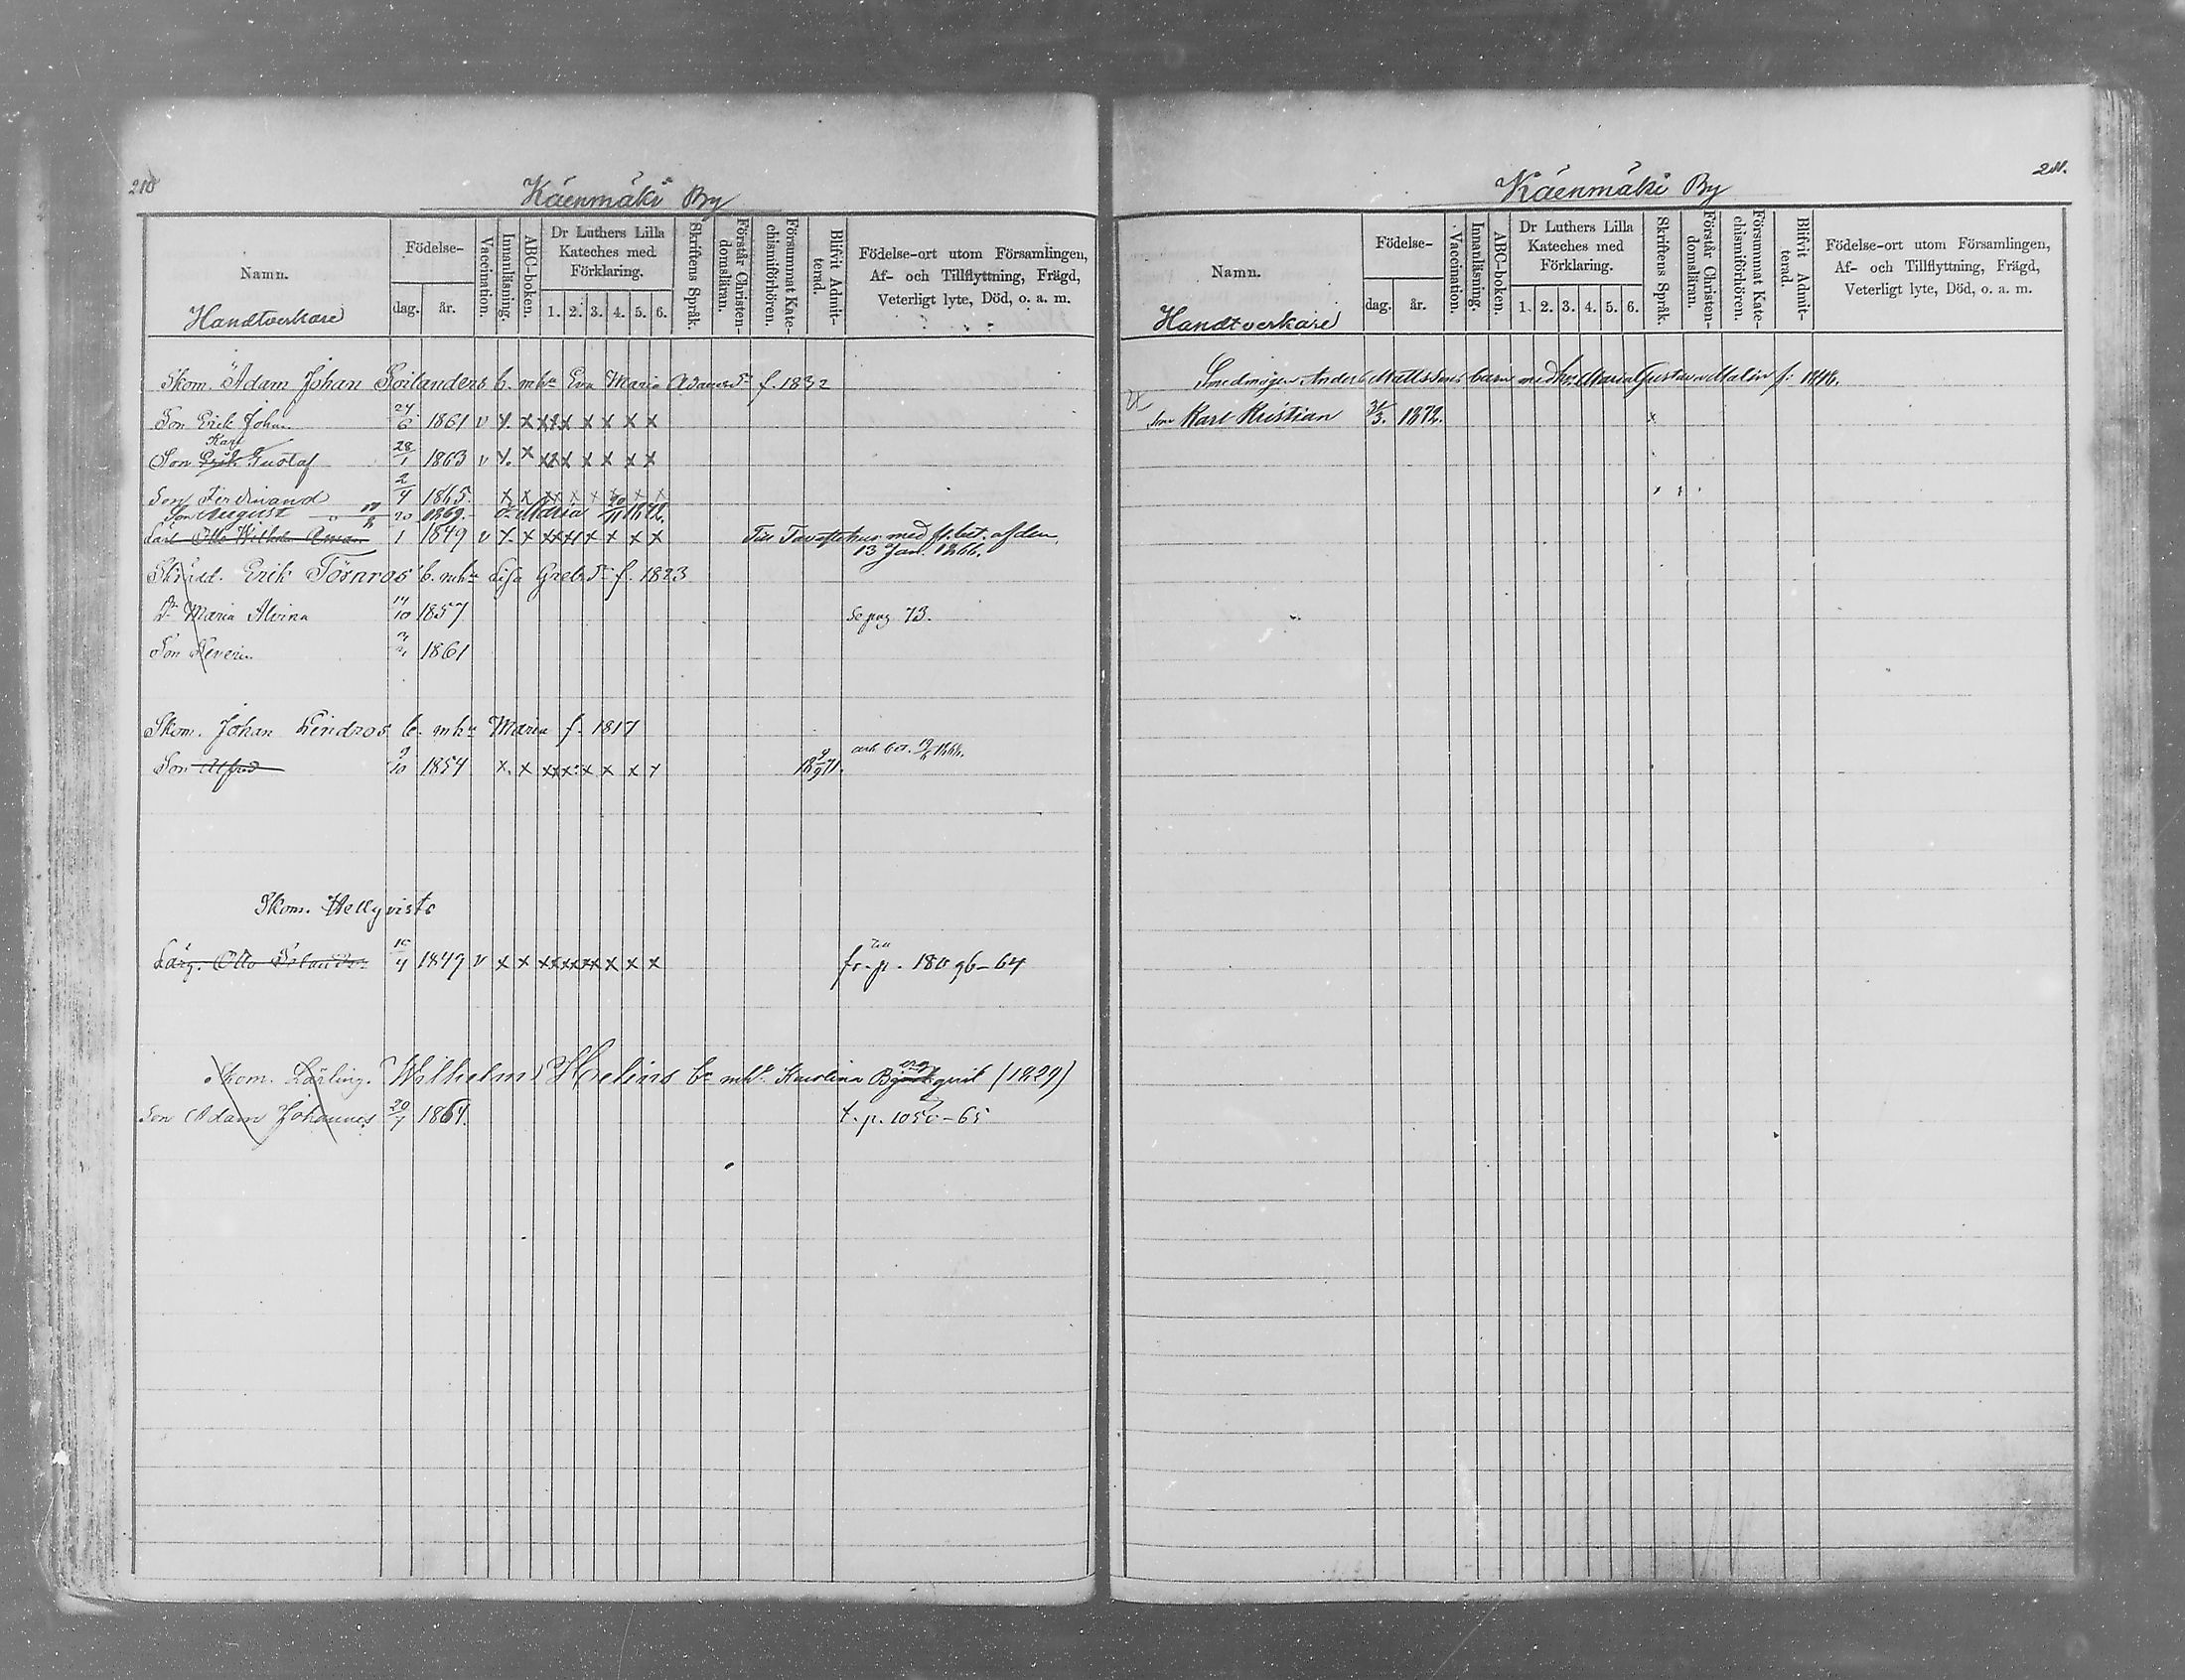 210
Käenmäki By
Namn.
Handtverkare
Födelse-
dag.
år.
Vaccination.
Innanläsning.
ABC-boken.
Dr Luthers Lilla
Kateches med
Förklaring.
1. 2. 3. 4. 5. 6.
Skriftens Språk.
Förstår Christen-
domsläran.
Försummat Kate-
chismiförhören.
Blifvit Admit-
terad.
Födelse-ort utom Församlingen,
Af- och Tillflyttning, Frägd,
Veterligt lyte, Död, o. a. m.
Skom. Adam Johan b. mhu Eva Maria f. 1832
Son Erik Johan 24/6 1861 v x x x x x x x x x
Karl
Son Erik Gustaf 28/1 1863 v x x x x x x x x
Son Ferdinand 2/4 1865 x x x x x x x x
Son August 1869. Maria
1 1849 v x x x x x x x x Till Tavastehus med fl. bet. af den
13 Jan. 1866.
Skrädd. Erik Törnros b. mhu Lisa f. 1823
Dr Maria Alvina 14/10 1857 Se pag 73.
Son Severin 1861
Skom. Johan Lindros b. mhu Maria f. 1817
19/6 1866.
Son Alfred 9/10 1854 x. x x x x x x x 18 9/9 71.
Skom. Hellqvists
Lärg. Otto 15/4 1849 v x x x x x x x x x fr. p. 180 96-64
Till
Skom. Lärling. Wilhelm Helins b. mh. Karolina (1829)
Son Adam Johannes 20/7 1864. t. p. 1050-65
211.
Käenmäki By
Namn.
Handtverkare
Födelse-
dag.
år.
Vaccination.
Innanläsning.
ABC-boken.
Dr Luthers Lilla
Kateches med
Förklaring.
1. 2. 3. 4. 5. 6.
Skriftens Språk.
Förstår Christen-
domsläran.
Försummat Kate-
chismiförhören.
Blifvit Admit-
terad.
Födelse-ort utom Församlingen,
Af- och Tillflyttning, Frägd,
Veterligt lyte, Död, o. a. m.
Anders Mattssons barn med Maria Gustava Malin f. 1848.
Son Karl Kristian 31/3. 1872. x